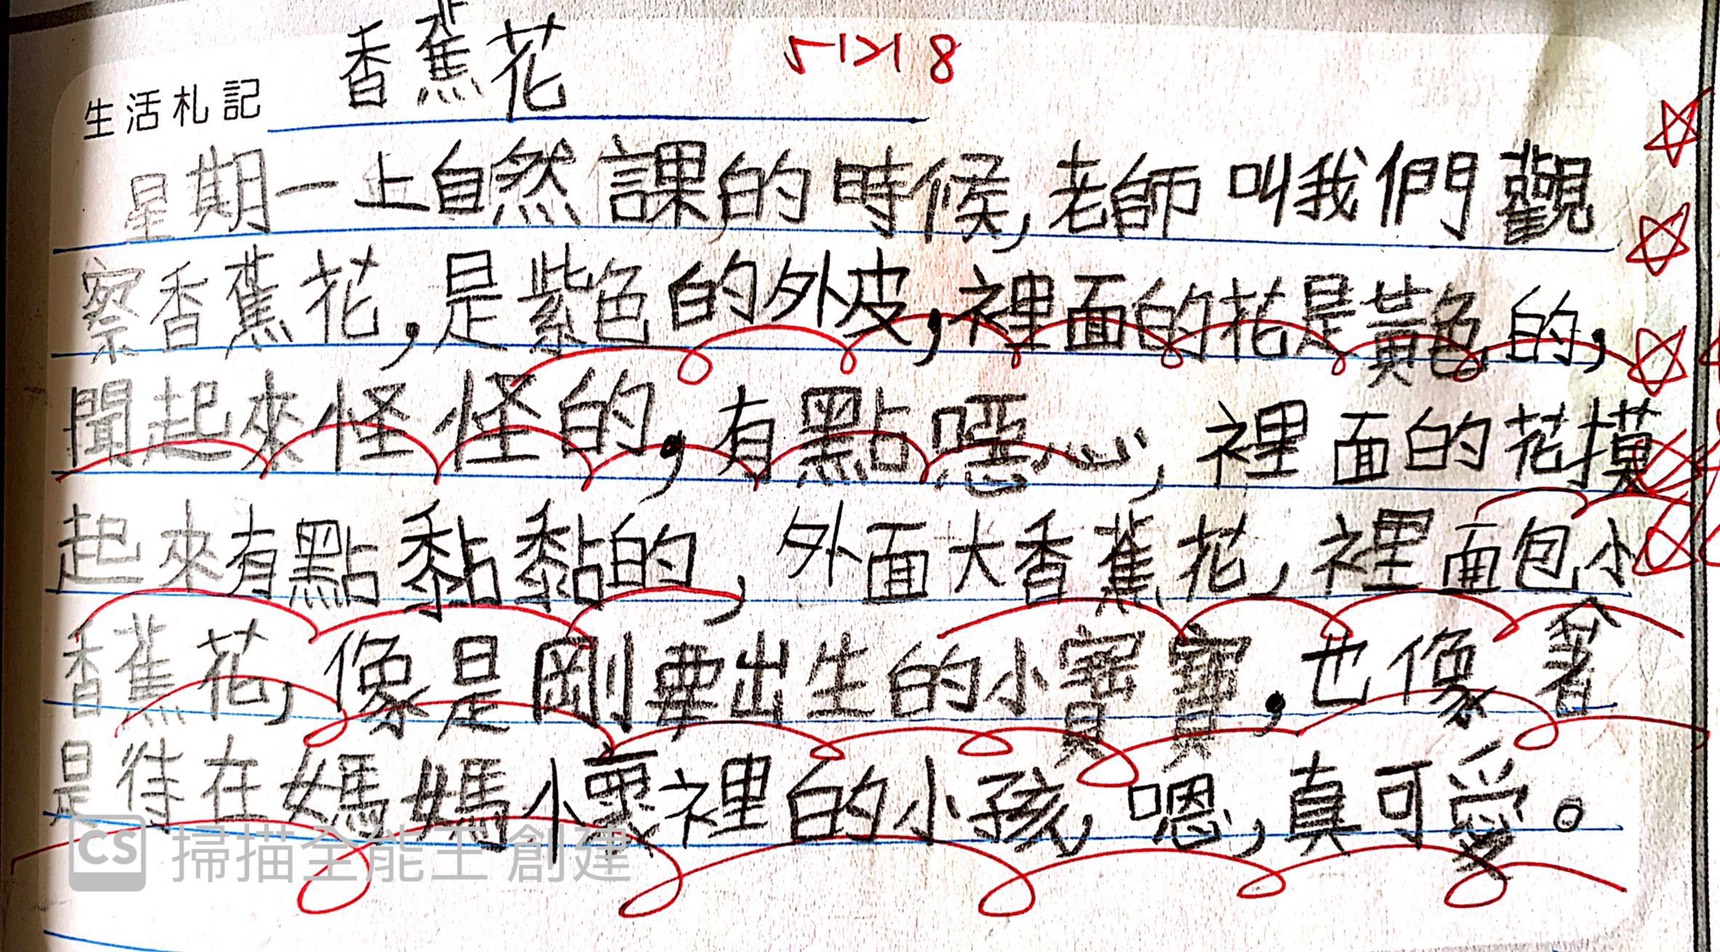 生活札記 香蕉花
星期一上自然課的時候,老師叫我們觀
察香蕉花,是紫色的外皮,裡面的花是黃色的,
聞起來怪怪的,有點噁心,裡面的花摸
起來有點黏黏的,外面大香蕉花,裡面包小
香蕉花,像是剛要出生的小寶寶,也像
著
是待在媽媽懷裡的小孩,嗯,真可愛。
CS 掃描全能王 創建